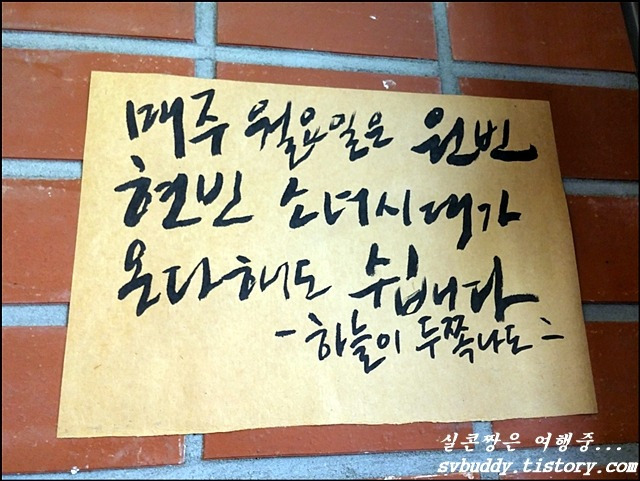 매주 월요일은 원빈
현빈 소녀시대가
온다해도 쉽니다
-하늘이 두쪽나도-
실콘짱은 여행중...
svbuddy.tistory.com